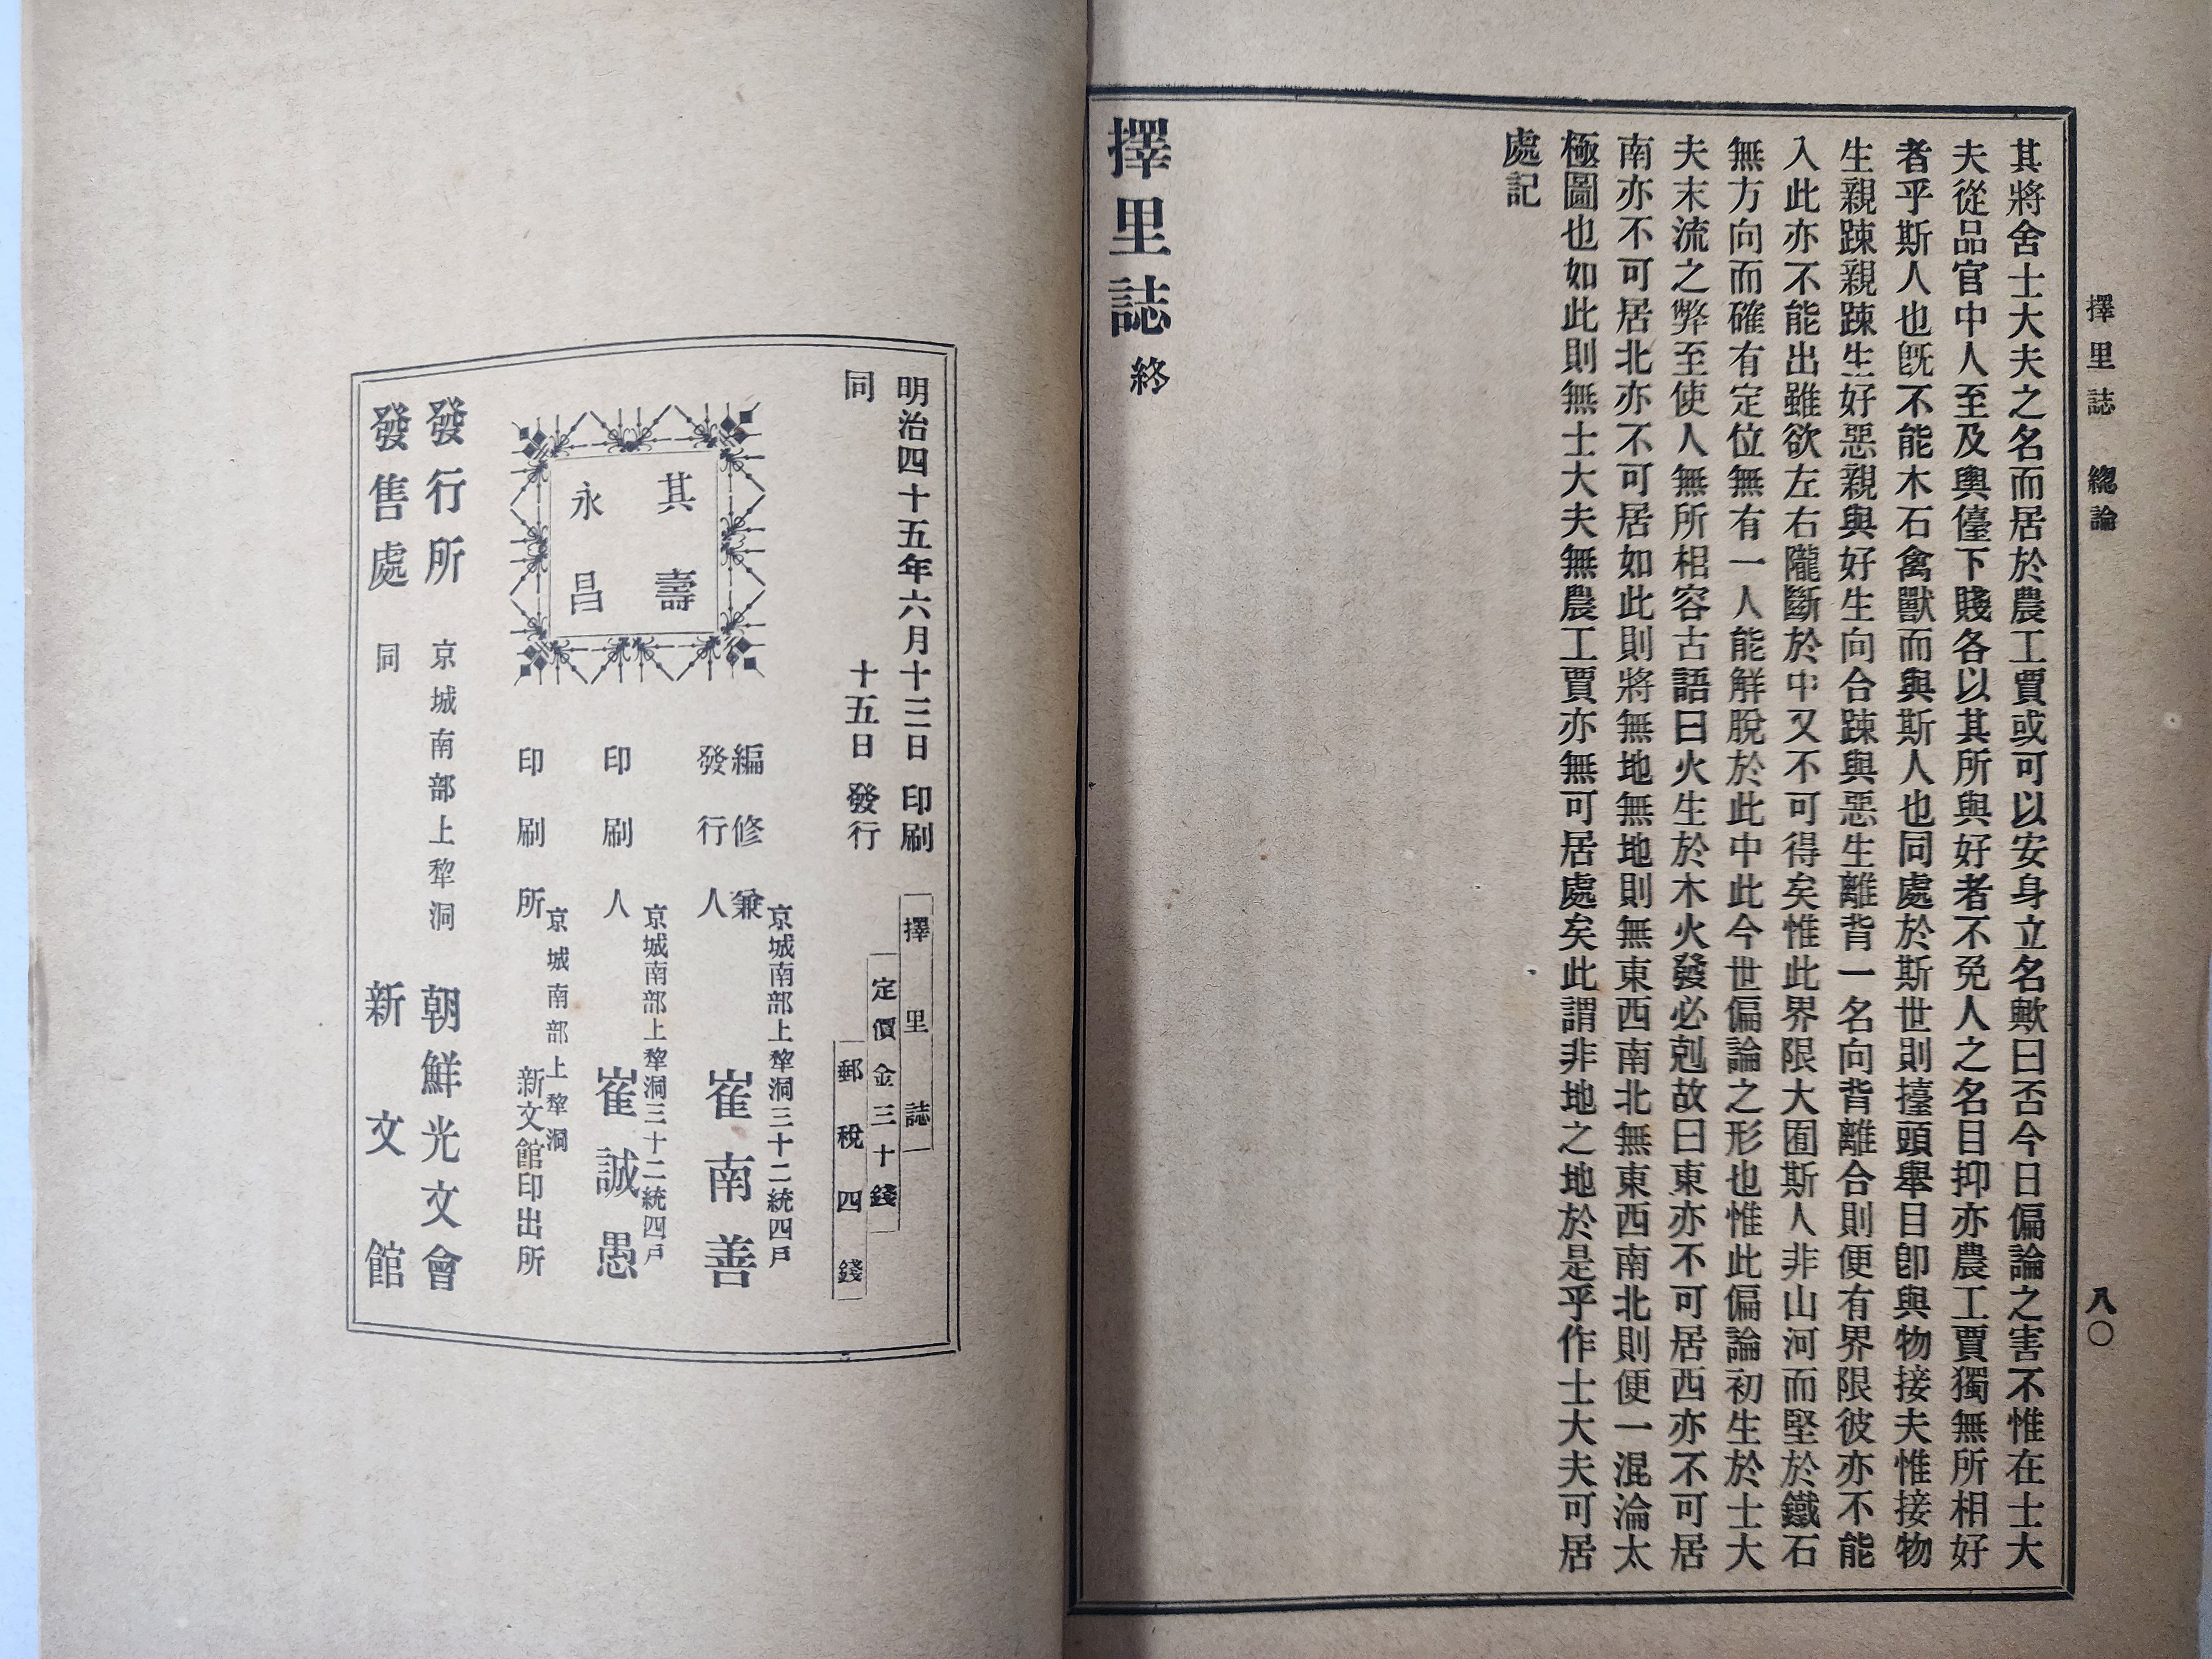 擇里誌 總論 八〇
其將舍士大夫之名而居於農工賈或可以安身立名歟曰否今日偏論之害不惟在士大
夫從品官中人至及輿儓下賤各以其所與好者不免人之名目抑亦農工賈獨無所相好
者乎斯人也旣不能木石禽獸而與斯人也同處於斯世則擡頭舉目卽與物接夫惟接物
生親踈親踈生好惡親與好生向合踈與惡生離背一名向背離合則便有界限彼亦不能
入此亦不能出雖欲左右隴斷於中又不可得矣惟此界限大囿斯人非山河而堅於鐵石
無方向而確有定位無有一人能解脫於此中此今世偏論之形也惟此偏論初生於士大
夫末流之弊至使人無所相容古語曰火生於木火發必剋故曰東亦不可居西亦不可居
南亦不可居北亦不可居如此則將無地無地則無東西南北無東西南北則便一混淪太
極圖也如此則無士大夫無農工賈亦無可居處矣此謂非地之地於是乎作士大夫可居
處記
擇里誌 終
明治四十五年六月十三日 印刷
同 十五日 發行
擇里誌
定價金三十錢
郵稅四錢
其壽
永昌
京城南部上犂洞三十二統四戶
編修兼
發行人 崔南善
京城南部上犂洞三十二統四戶
印刷人 崔誠愚
京城南部上犂洞
印刷所 新文館印出所
發行所 京城南部上犂洞 朝鮮光文會
發售處 同 新文館